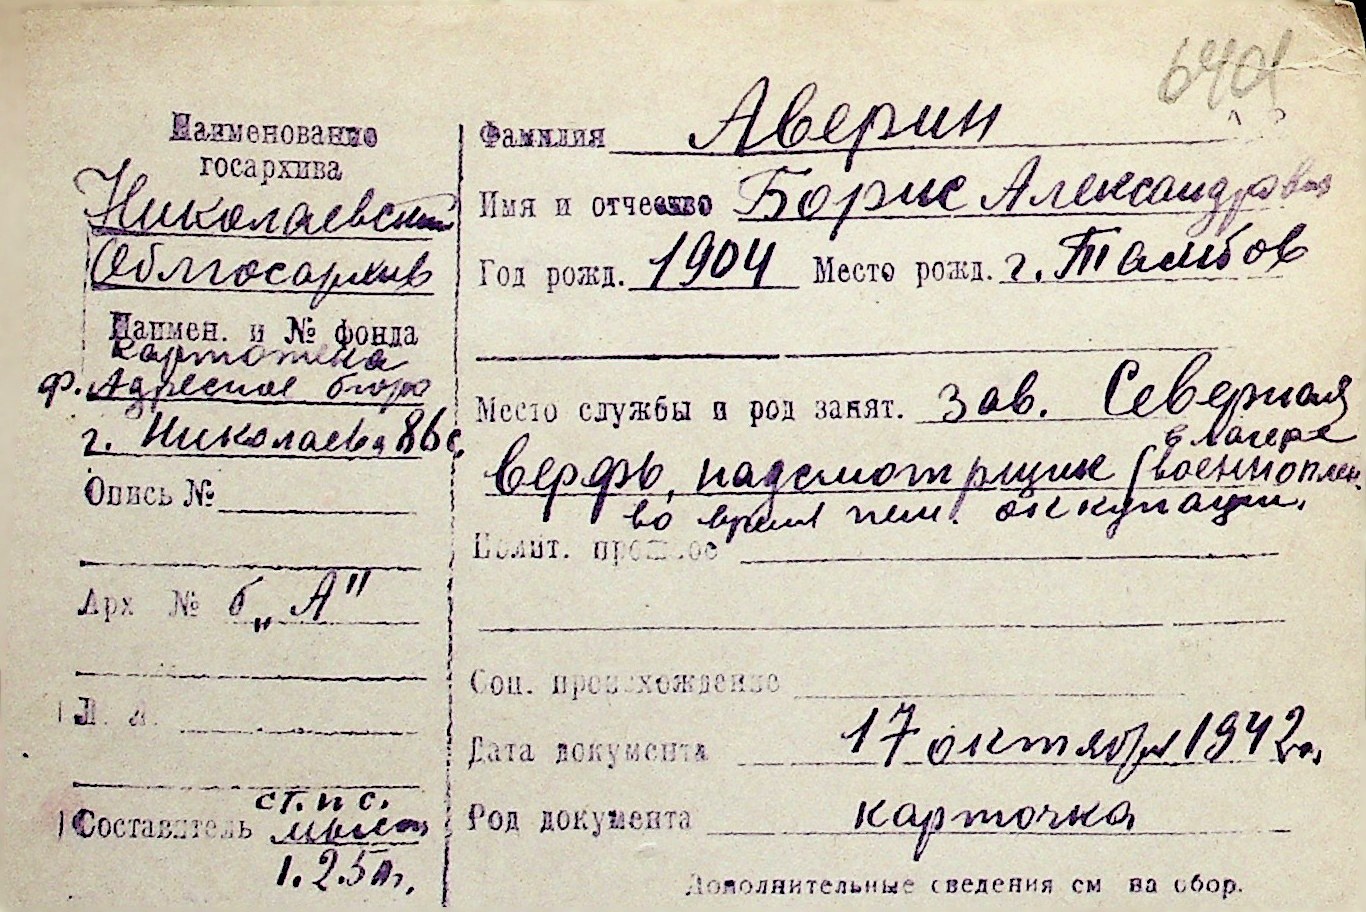 6401
Наименование
госархива
Николаевский
Облгосархив
Наимен. и № фонда
картотека
ф. Адресное бюро
г. Николаева 86 с,
Опись №
Арх № б „А"
Л. Л.
Составитель ст. п с.
1.2.50г.
Фамилия Аверин
Имя и отчество Борис Александрович
Год рожд. 1904 Место рожд. г. Тамбов
Место службы и род занят. зав. Северная
верфь, надсмотрщик (в лагере военноплен.
во время нем. оккупации.
Полит. прошлое
Соц. происхождение
Дата документа 17 октября 1942г.
Род документа карточка
Дополнительные сведения см на обор.